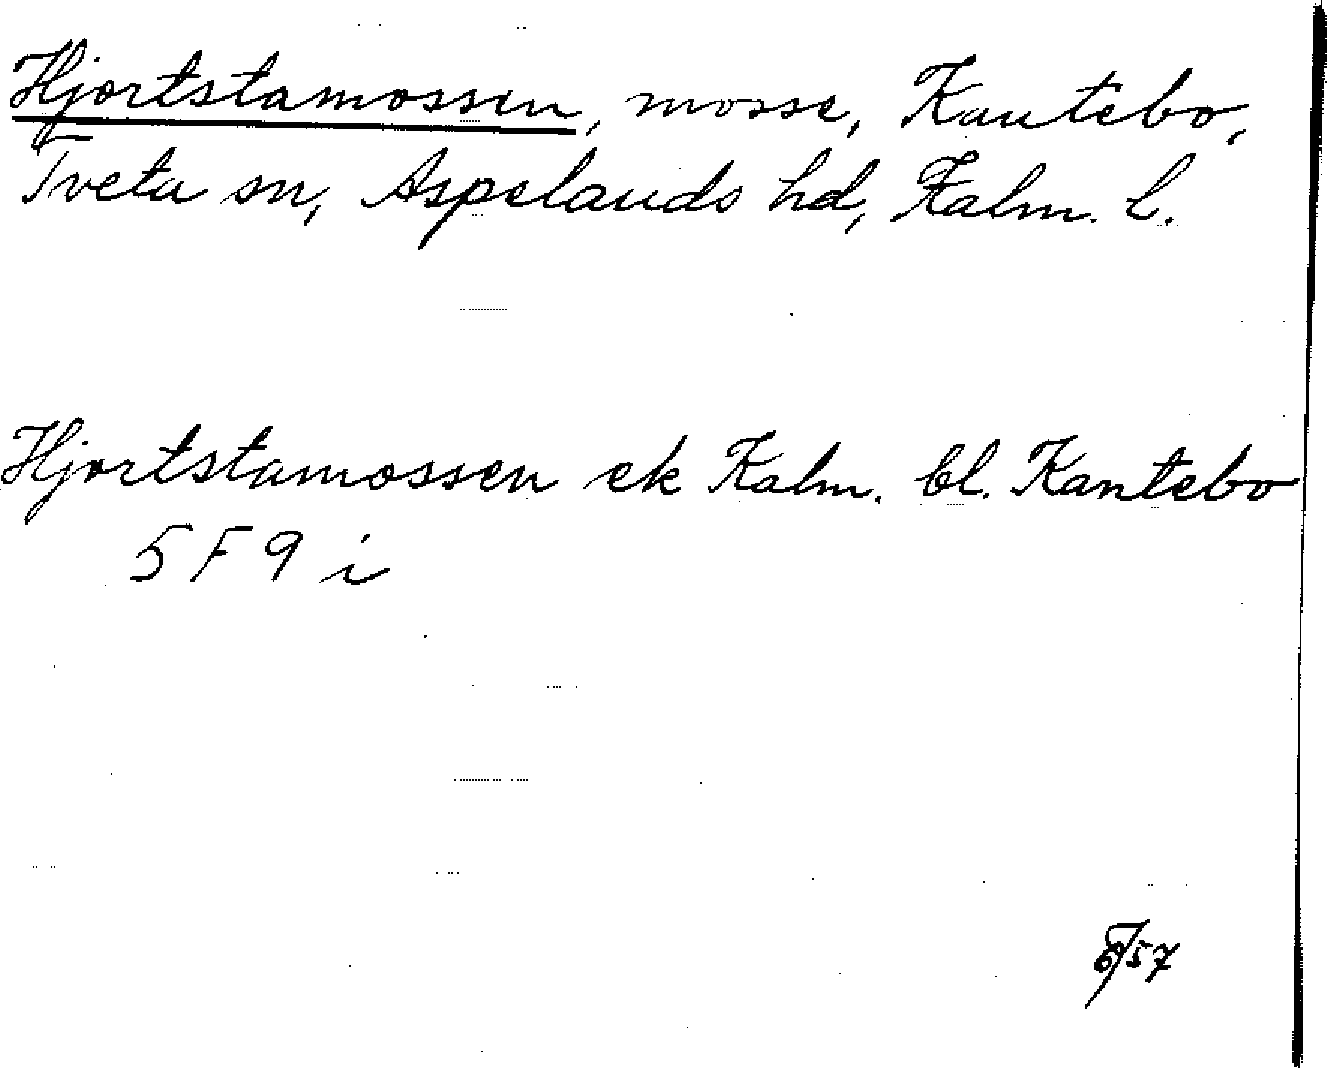 Hjortstamossen, mosse, Kantebo,
Tveta sn, Aspelands hd, Kalm. l.
Hjortstamossen ek Kalm. bl. Kantebo
5 F 9 i